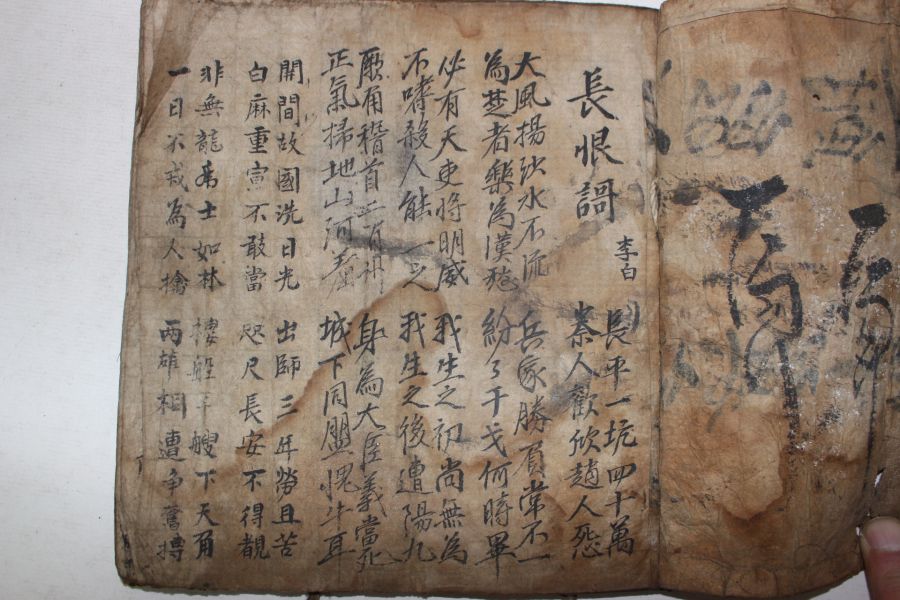 長恨謌
李白
長平一坑四十萬
秦人歡欣趙人怨
大風揚沙水不流
為楚者樂為漢愁
兵家勝負常不一
紛々干戈何時畢
必有天吏將明威
不嗜殺人能一之
我生之初尚無為
我生之後遭陽九
厥角稽首二百
正氣掃地山河羞
身為大臣義當死
城下同盟愧牛耳
開間故國洗日光
白麻重宣不敢當
出師三年勞且苦
咫尺長安不得覩
非無龍虎士如林
一日不戒為人擒
樓船千艘下天角
兩雄相遭爭奮搏